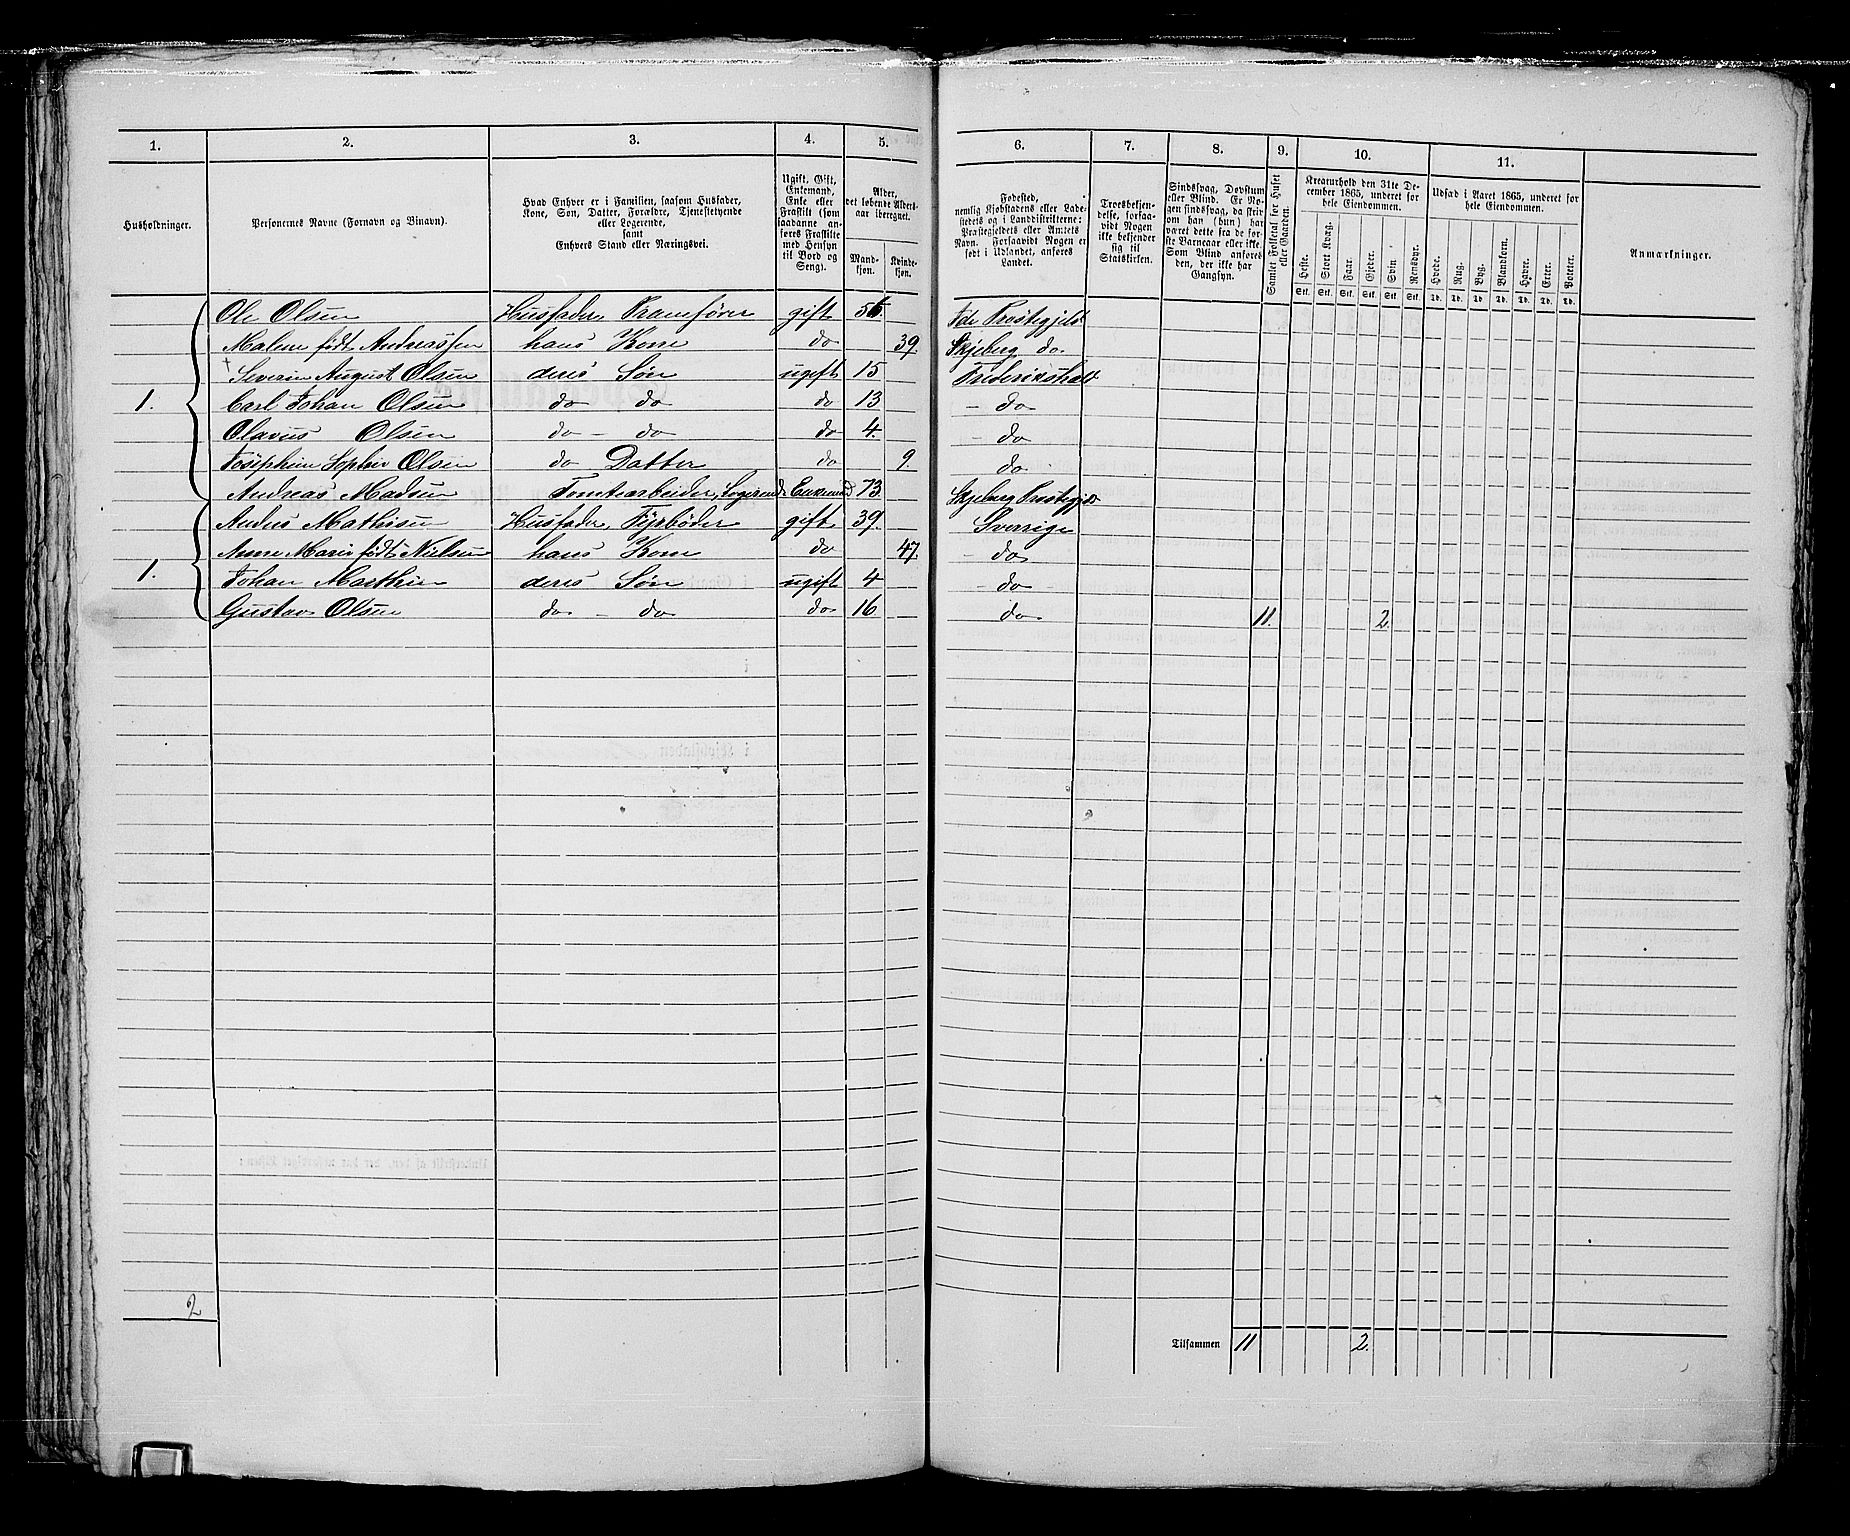 1. 2. 3. 4. 5. 6. 7. 8. 9. 10. 11.
Husholdninger.
Personernes Navne (Fornavn og Binavn).
Hvad Enhver er i Familien, saasom Husfader,
Kone, Søn, Datter, Forældre, Tjenestetyende
eller Logerende,
samt
Enhvers Stand eller Næringsvei.
Ugift, Gift,
Enkemand,
Enke eller
Fraskilt (som
saadanne an-
føres Fraskilte
med Hensyn
til Bord og
Seng).
Alder,
det løbende Alders-
aar iberegnet.
Mand-
kjøn.
Kvinde-
kjøn.
Fødested,
nemlig Kjøbstadens eller Lade-
stedets og i Landdistrikterne:
Præstegjeldets eller Amtets
Navn. Forsaavidt Nogen er
født i Udlandet, anføres
Landet.
Troesbekjen-
delse, forsaa-
vidt Nogen
ikke bekjender
sig til
Statskirken.
Sindssvag, Døvstum
eller Blind. Er No-
gen sindssvag, da skriv
om han (hun) har
været dette fra de før-
ste Barneaar eller ikke.
Som Blind anføres
den, der ikke har
Gangsyn.
Samlet Folketal for Huset
eller Gaarden.
Kreaturhold den 31te De-
cember 1865, underet for
hele Eiendommen.
Heste. Stort Kvæg. Faar. Gjeder. Svin Rensdyr.
Stk. Stk. Stk. Stk. Stk. Stk.
Udsæd i Aaret 1865, underet for
hele Eiendommen.
Hvede. Rug. Byg. Blandkorn. Havre. Erter. Poteter.
Td. Td. Td. Td. Td. Td. Td.
Anmærkninger.
Ole Olsen Husfader, Pramfører gift 56 Ide Præstegjeld
Malene født Andreassen hans Kone do 39. Skjeberg do.
+ Severin August Olsen deres Søn ugift 15 Frederikshald
1. Carl Johan Olsen do do do 13 - do
Olavus Olsen do - do do 4. - do
Josephine Sophie Olsen do Datter do 9. do
Andreas Madsen Tomtearbeider, Logerende Enkemand 73. Skjeberg Præstegjld
Anders Mathisen Husfader, Fyrbøder gift 39. Sverrige
Anne Marie født Nielsen hans Kone do 47. - do
1. Johan Marthin deres Søn ugift 4 - do
Gustav Olsen do - do do 16 do 11. 2.
2
Tilsammen 11 2.